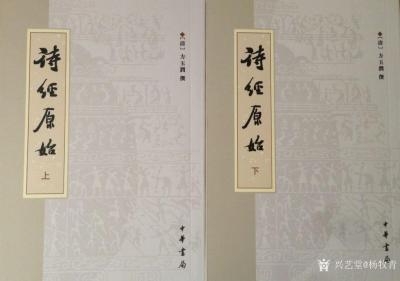 诗经原始
上
[清] 方玉润 撰
中華書局
诗经原始
下
[清] 方玉润 撰
中華書局
兴艺堂@杨牧青